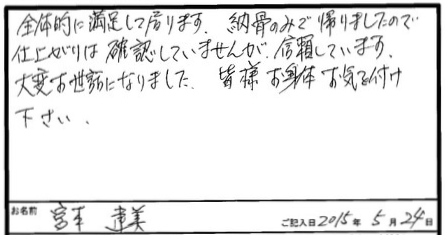 全体的に満足して居ります。納骨のみで帰りましたので
仕上がりは確認していませんが、信頼しています。
大変お世話になりました。皆様お身体お気を付け
下さい。
お名前 宮本 恵美 ご記入日2015年5月24日